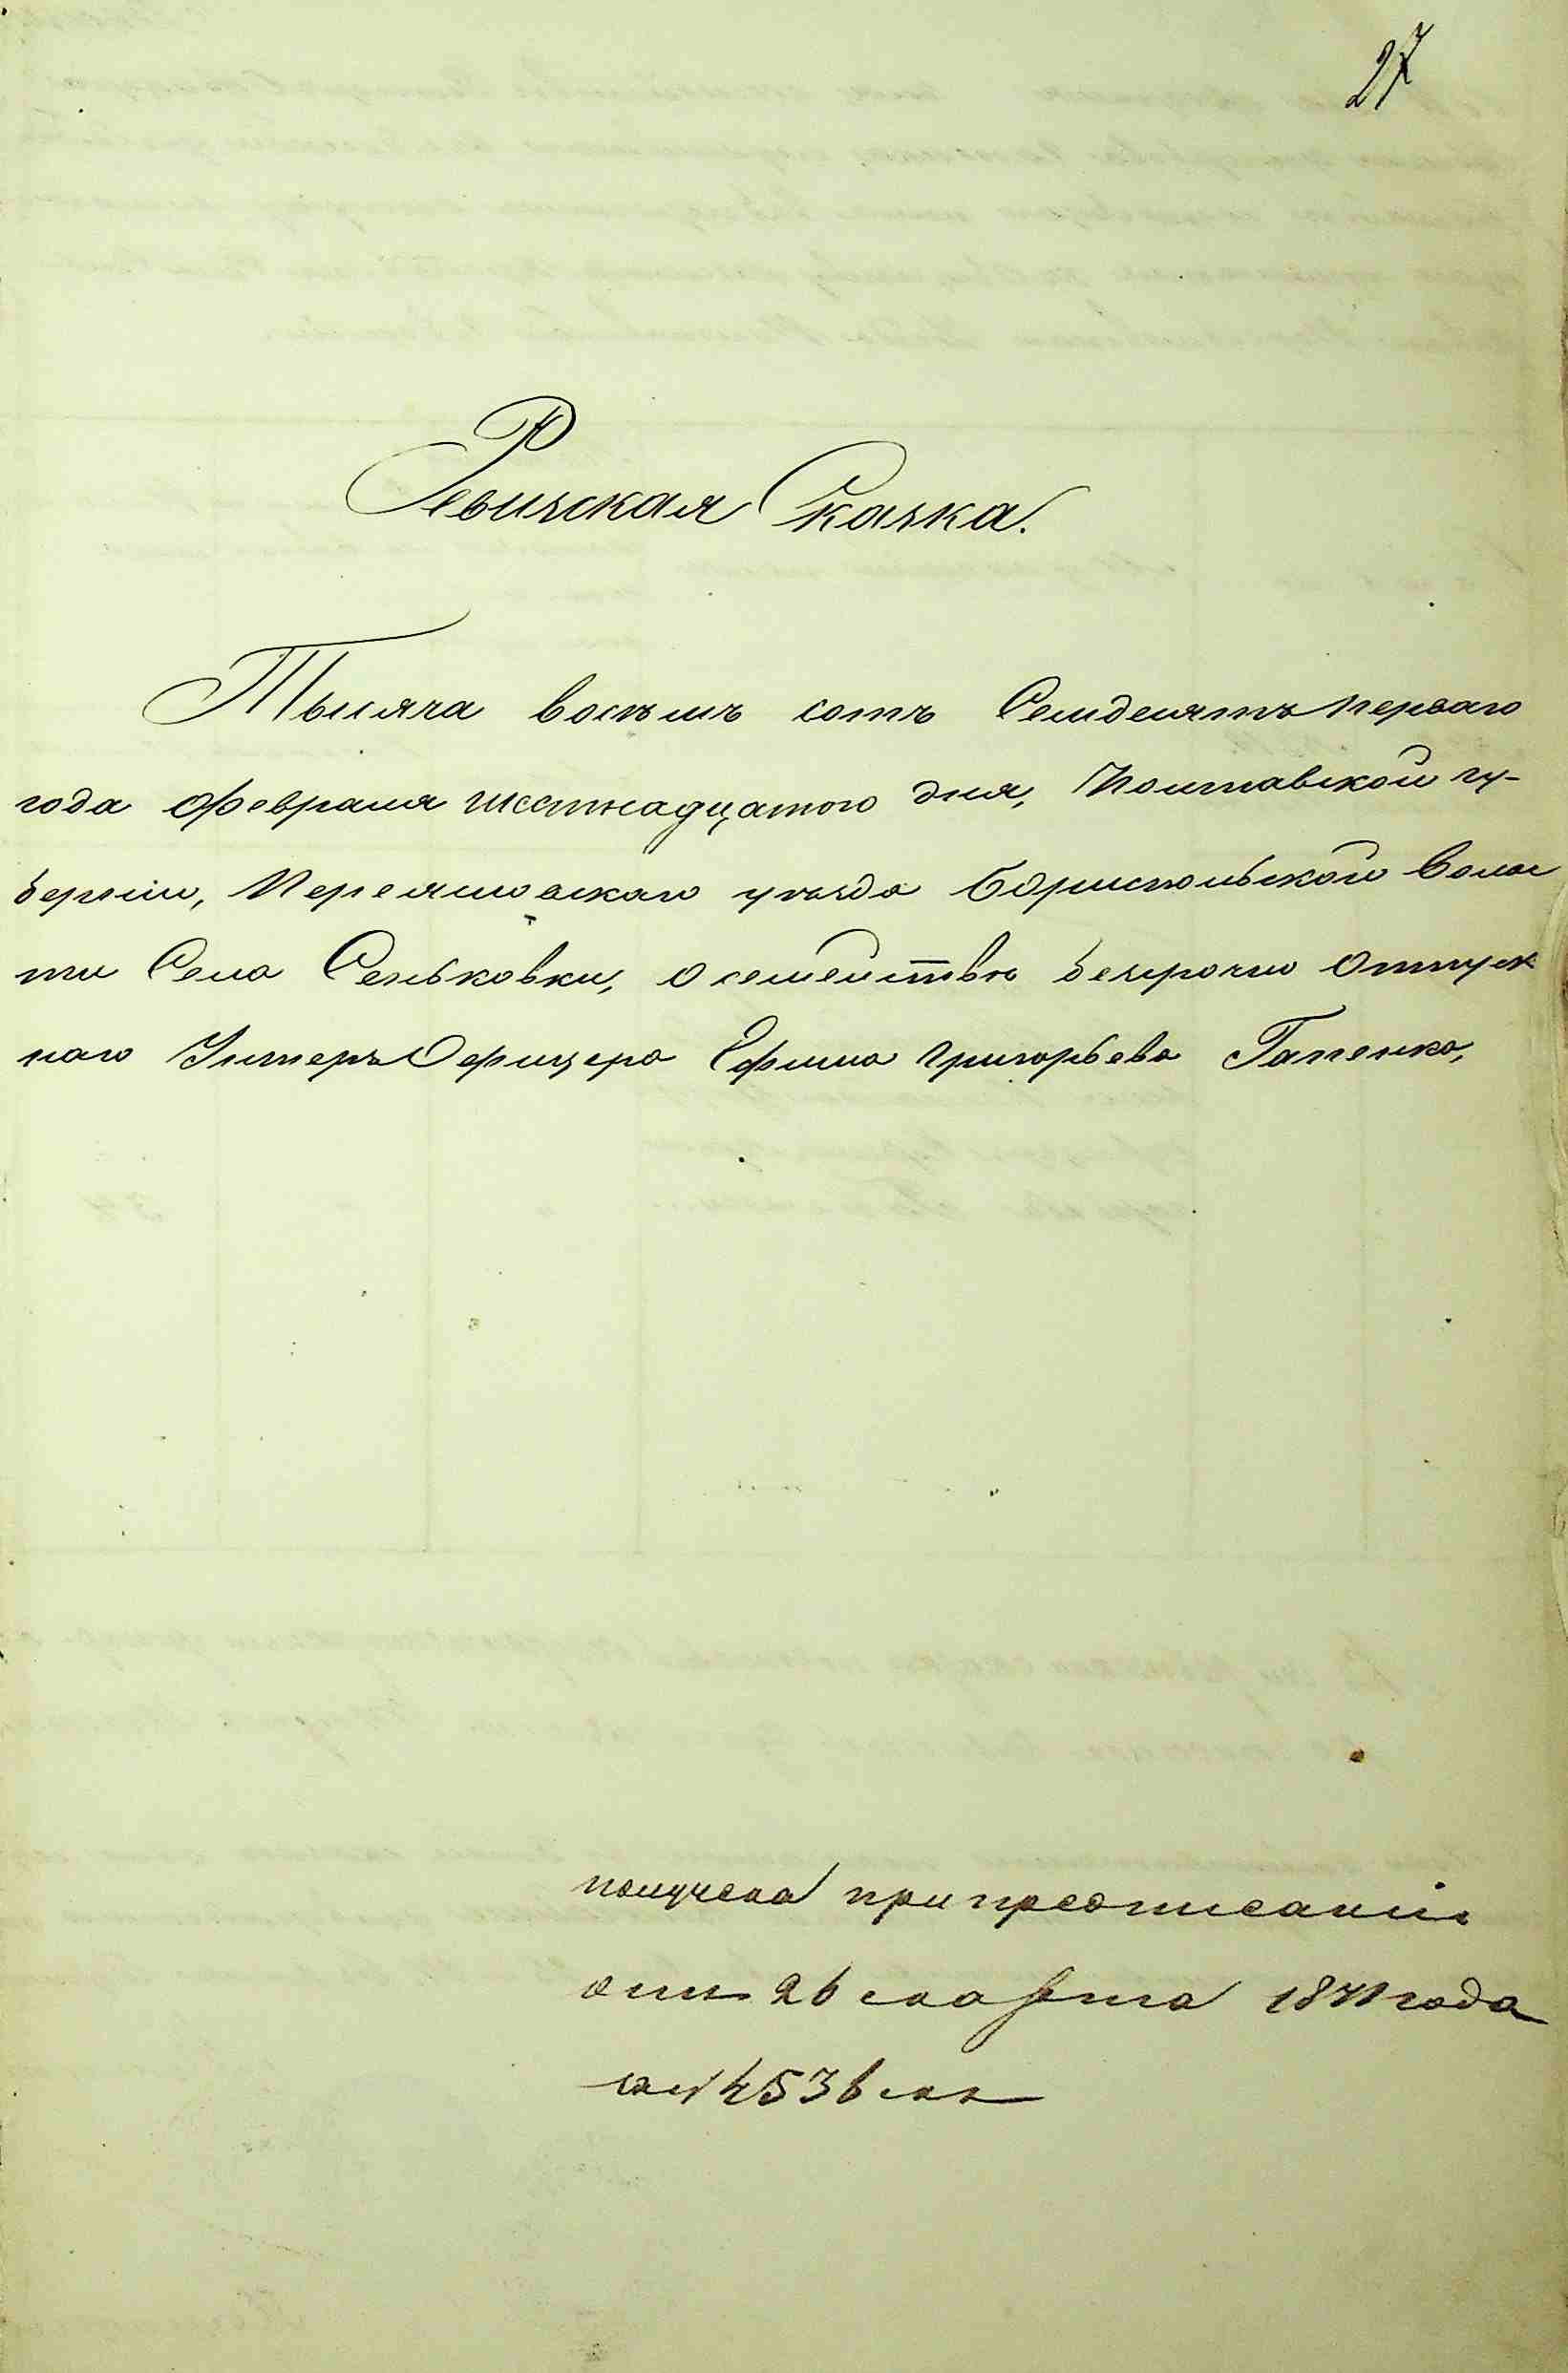 27
Ревизская Сказка.
Тысяча восѣмъ сотъ Семдесятъ перваго
года февраля шестнадцатого дня, Полтавской гу-
берніи, Переяславскаго уѣзда Бориспольской Волос
ти Села Сеньковки, о семействѣ безсрочно отпуск
наго Унтеръ Офицера Ефима Григорьева Гапенко,
получена при предписаніи
отъ 26 марта 1871 года
за № 4536